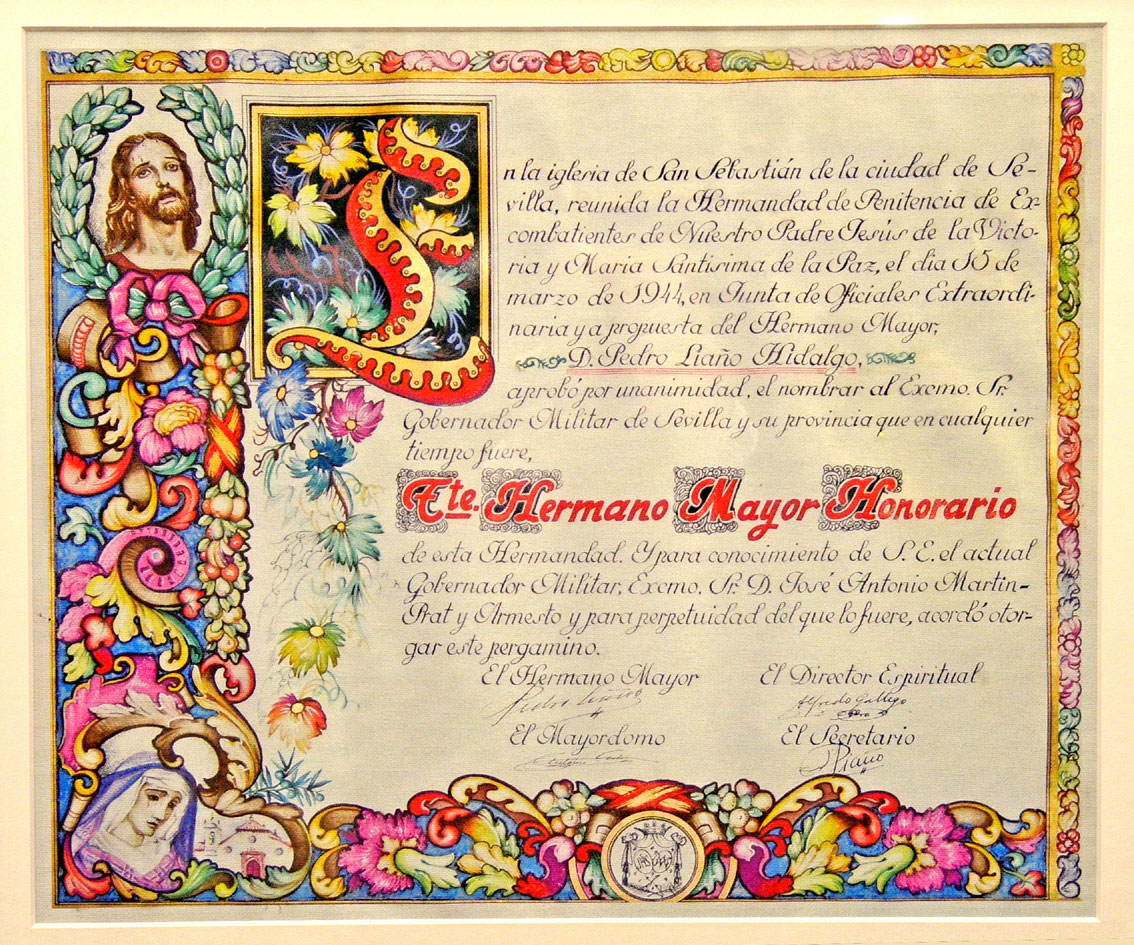 En la iglesia de San Sebastián de la ciudad de Se-
villa, reunida la Hermandad de Penitencia de Ex-
combatientes de Nuestro Padre Jesús de la Victo-
ria y María Santísima de la Paz, el día 15 de
marzo de 1944, en Junta de Oficiales Extraordi-
naria y a propuesta del Hermano Mayor,
D. Pedro Liaño Hidalgo,
aprobó por unanimidad, el nombrar al Excmo. Sr.
Gobernador Militar de Sevilla y su provincia que en cualquier
tiempo fuere,
Tte. Hermano Mayor Honorario
de esta Hermandad. Y para conocimiento de S. E. el actual
Gobernador Militar, Excmo. Sr. D. José Antonio Martin-
Prat y Armesto y para perpetuidad del que lo fuere, acordó otor-
gar este pergamino.
El Hermano Mayor El Director Espiritual
Pedro Liaño Alfredo Gallego
El Mayordomo El Secretario